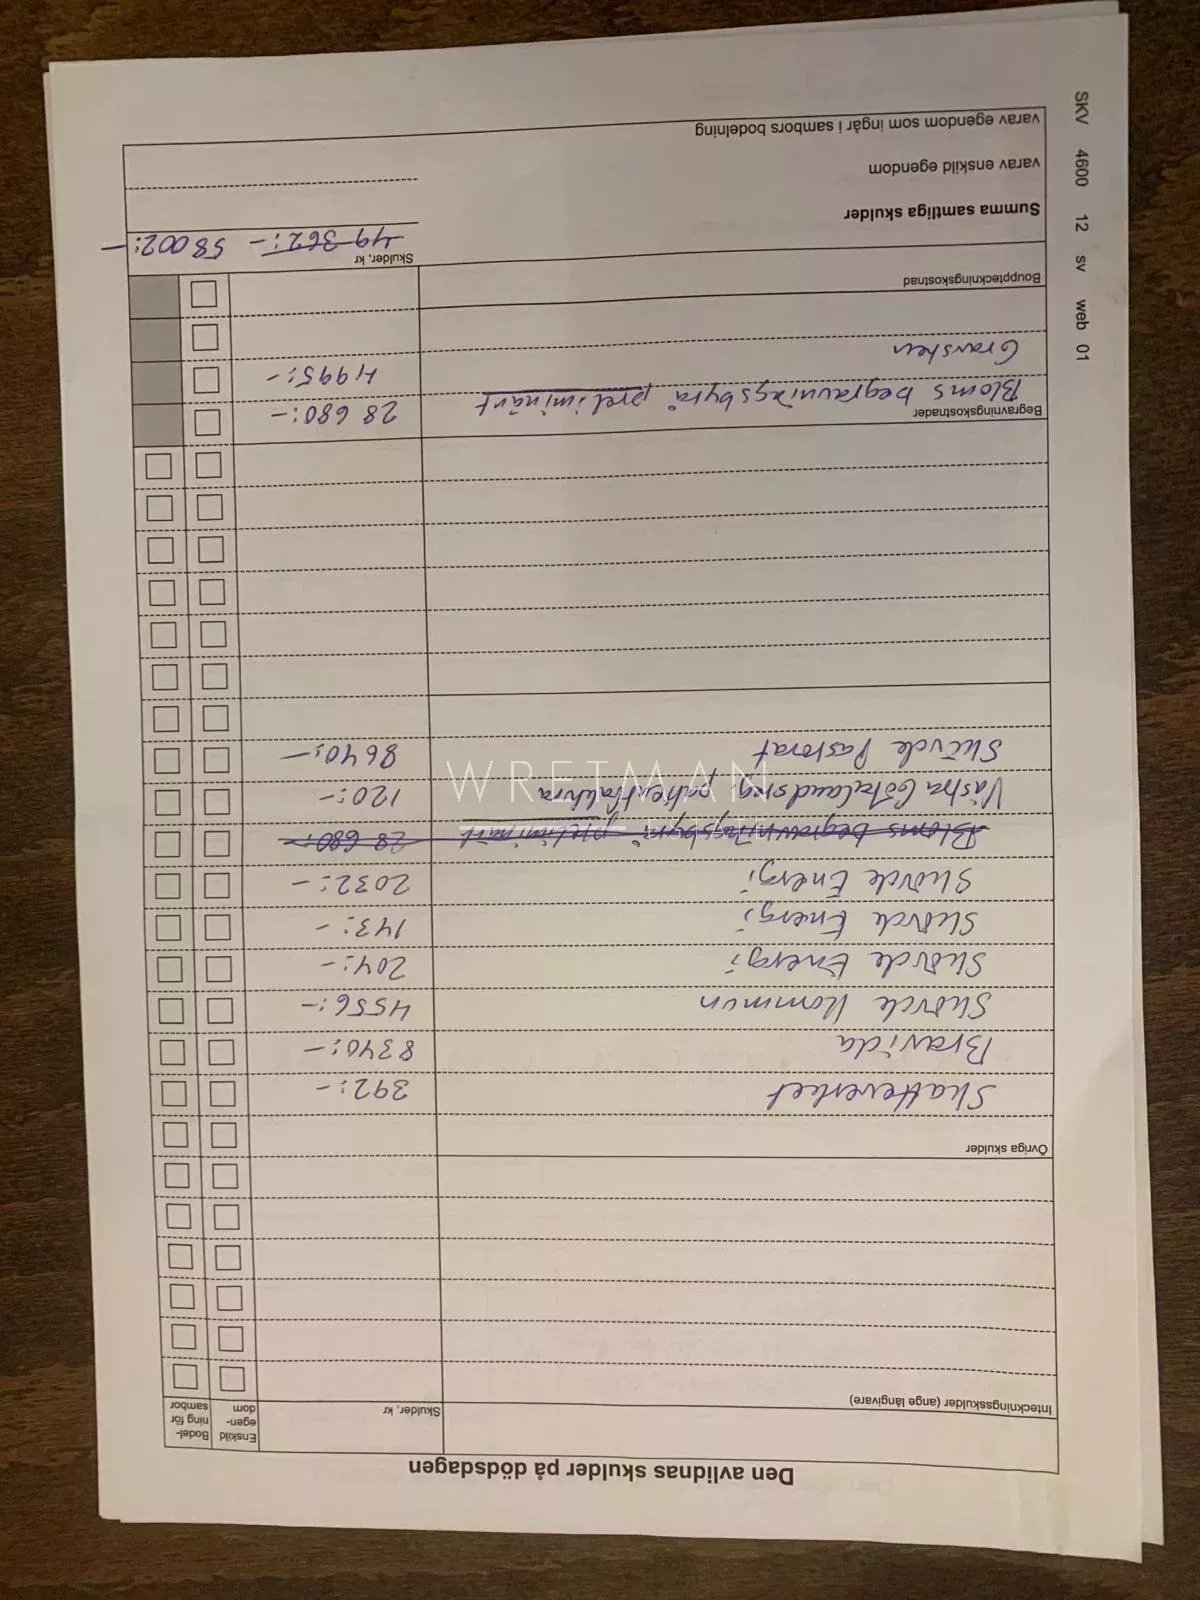 Den avlidnas skulder på dödsdagen
Inteckningsskulder (ange långivare)
Skulder, kr
Enskild egen- dom
Bodel- ning för sambor
Övriga skulder
Skatteverket 392:-
Bravida 8340:-
Skövde Kommun 4556:-
Skövde Energi 204:-
Skövde Energi 143:-
Skövde Energi 2032:-
Bloms begravningsbyrå preliminärt 28 680:-
Västra Götalandsreg patientfaktura 120:-
Skövde Pastorat 8640:-
Begravningskostnader
Bloms begravningsbyrå preliminärt 28 680:-
Gravsten 4995:-
Bouppteckningskostnad
Skulder, kr
Summa samtliga skulder 49 362:- 58 002:-
varav enskild egendom
varav egendom som ingår i sambors bodelning
SKV 4600 12 sv web 01
WRETMAN
ESTATE